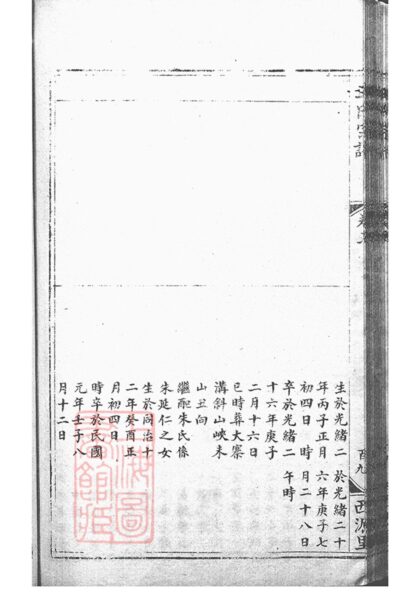 氏宗譜
百九
西源里
生於光緒二 於光緒二十
年丙子正月 六年庚子七
初四日 時 月二十八日
卒於光緒二 午時
十六年庚子
二月十六日
巳時葬大寨
溝斜山峽未
山丑向
繼配朱氏係
朱延仁之女
生於同治十
二年癸酉正
月初四日
時卒於民國
元年壬子八
月十二日
上海圖
書館藏